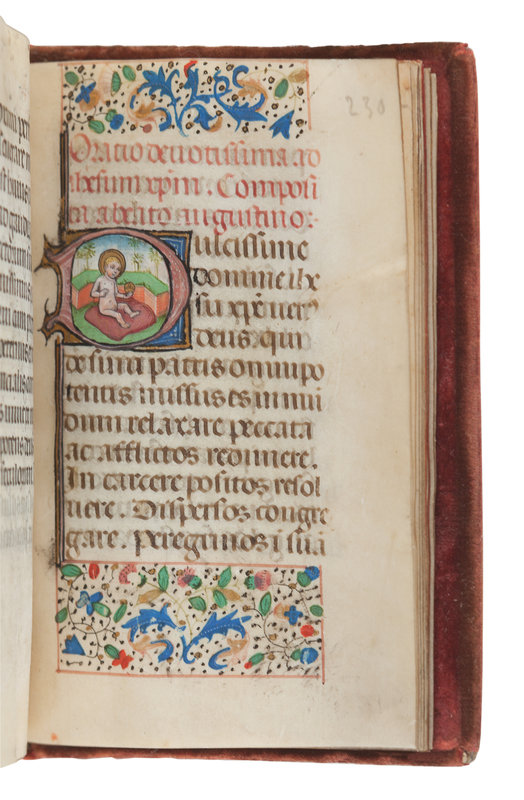 230
Oratio deuotissima ad
ihesum xp̄m. Composi
ta a beato augustino:
Dulcissime
domine ihx
su xp̄e uer
deus: qui
de sinu patris omnipo
tentis missus es in mū
dum relaxare peccata
ac afflictos redimere.
In carcere positos resol
uere. Dispersos congre
gare. peregrinos ī suā